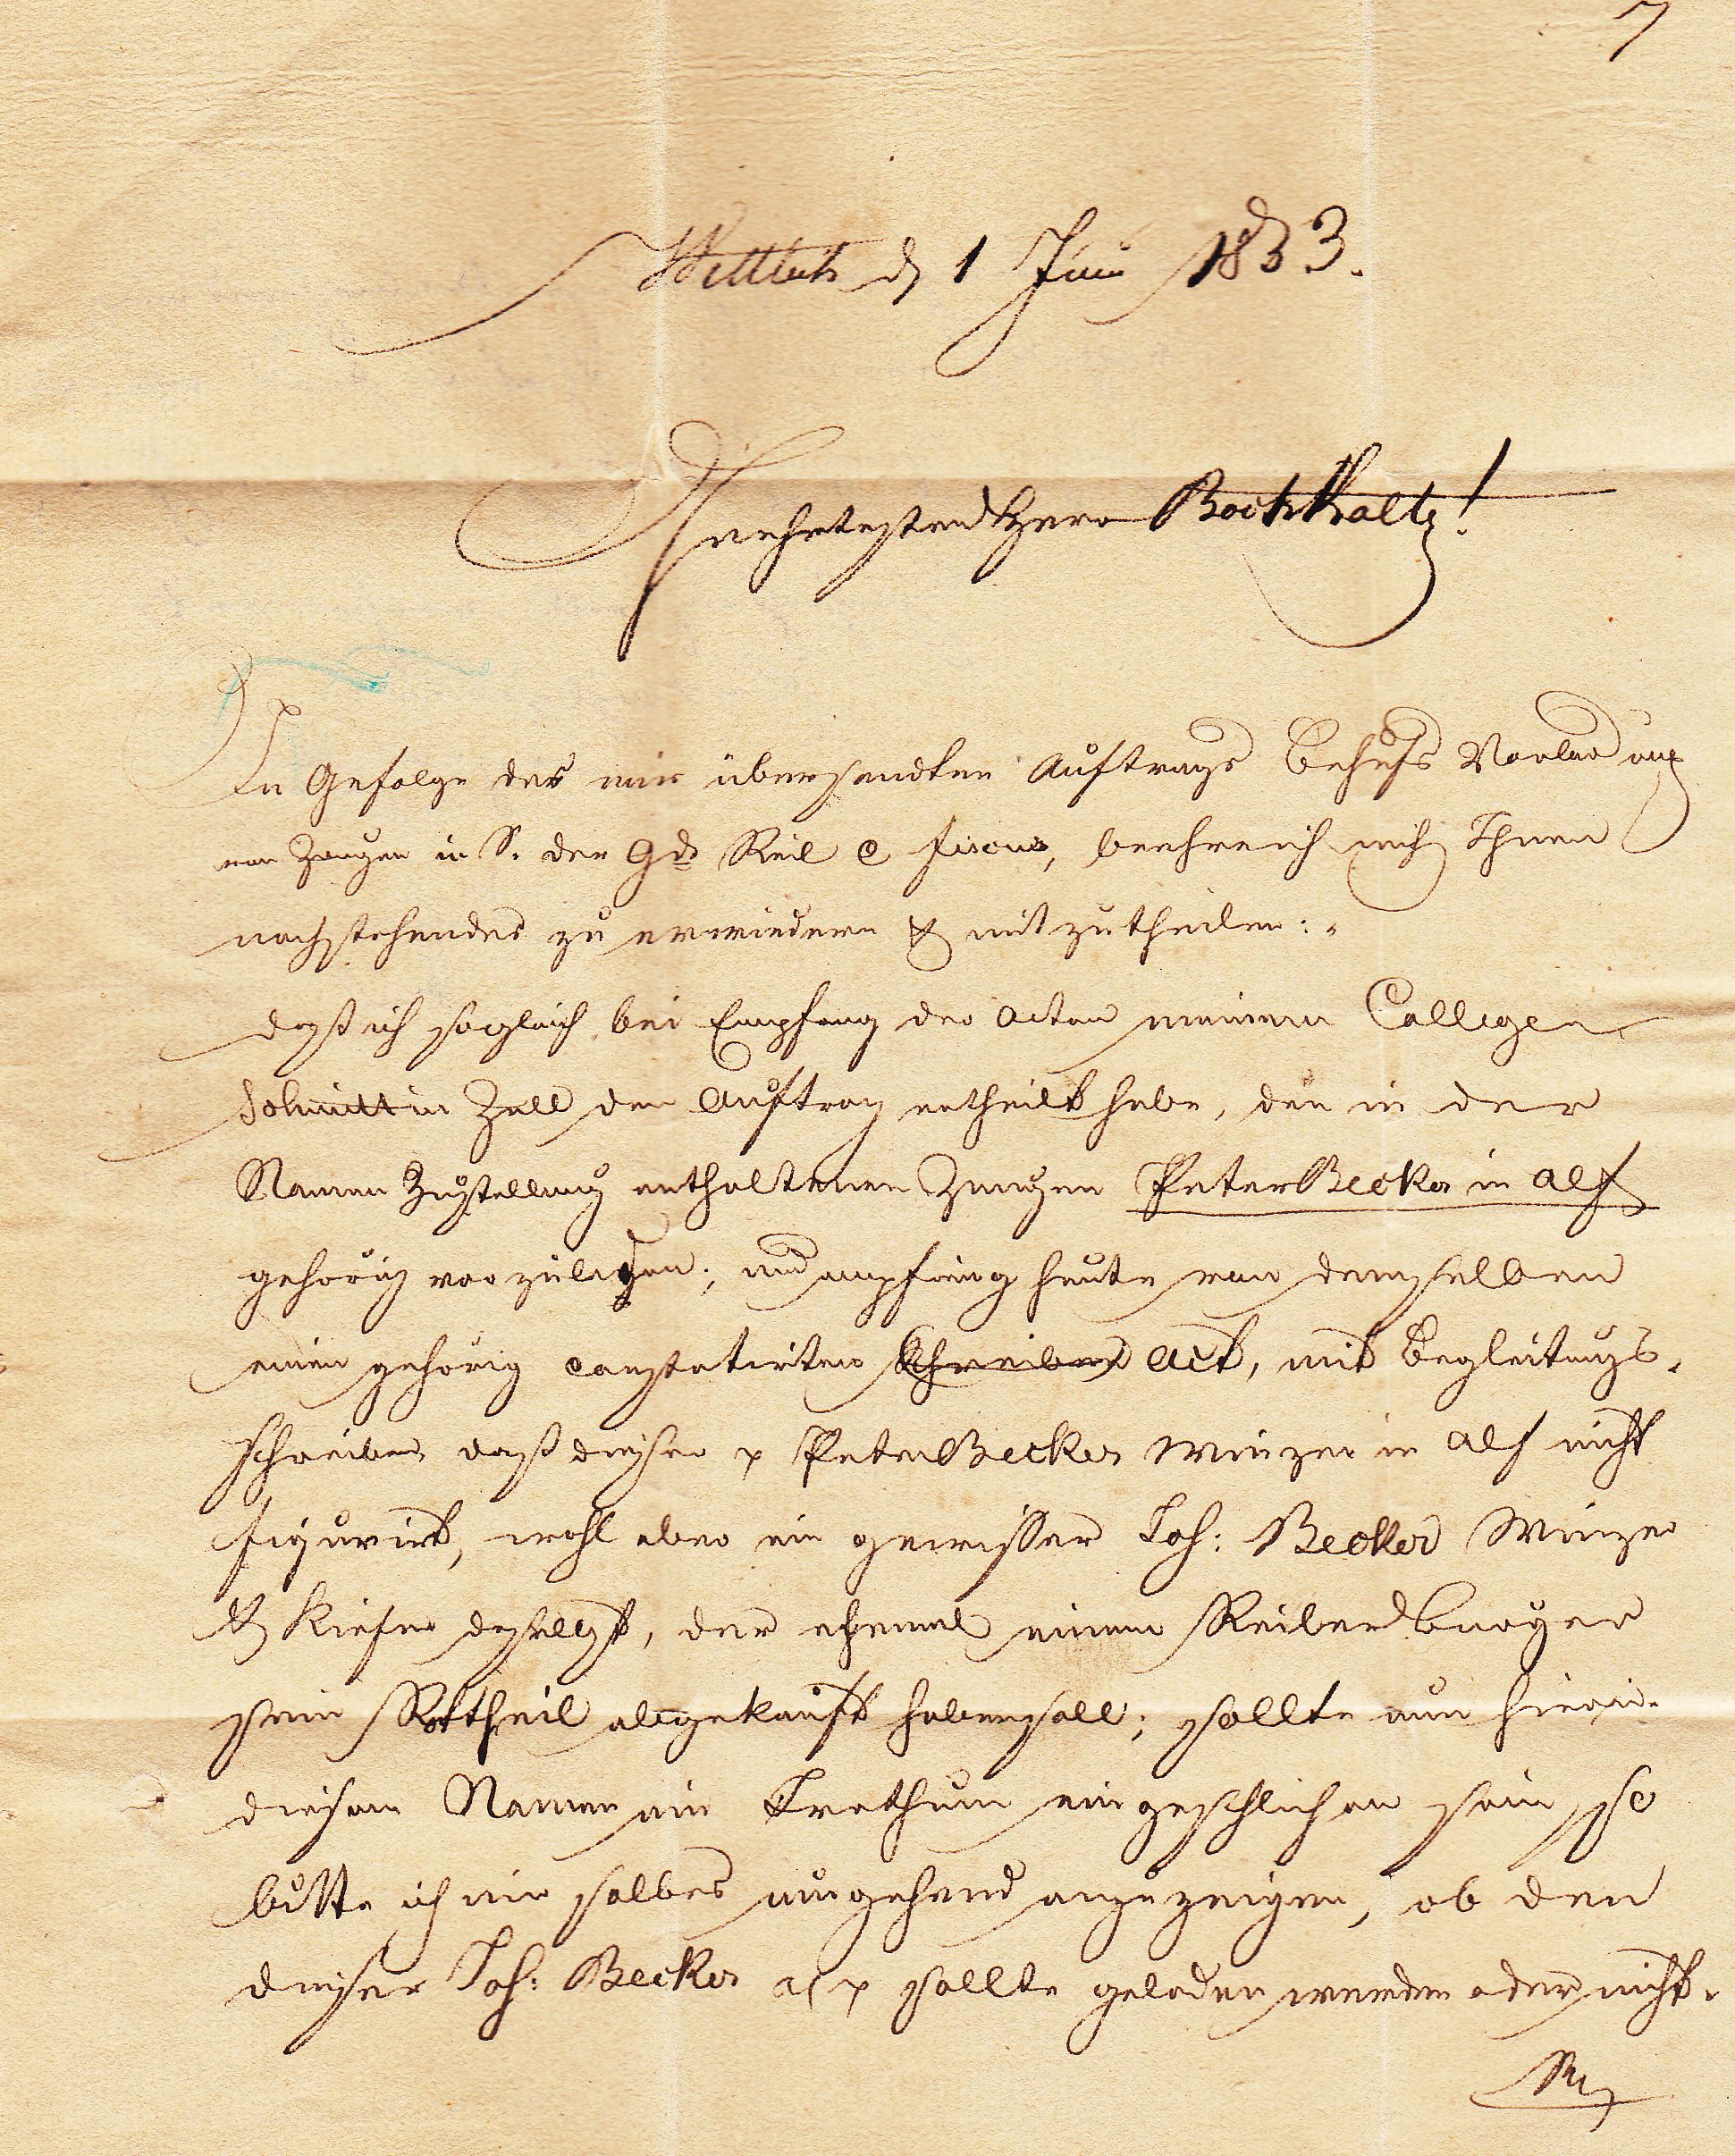 7
Wittlich d 1 Juni 1833.
Verehrtester Herr Bochkoltz!
In Gefolge des mir übersandten Auftrags Behufs Vorladung
von Zeugen in S. der Gde Reil c Fiscus, beehre ich mich Ihnen
nachstehendes zu erwiedern & mitzutheilen:
daß ich sogleich bei Empfang der Acten meinem Collegen
Schmitt in Zell den Auftrag ertheilt habe, den in der
Namen Zustellung enthaltenen Zeugen Peter Becker in Alf
gehörig vorzuladen; und empfing heute von demselben
einen gehörig constatirten Schreiben Act, mit Begleitungs-
schreiben daß dieser p Peter Becker Winzer in Alf nicht
figurirt, wohl aber ein gewisser Joh: Becker Winzer
& Kiefer daselbst, der ehemals einem Reiler Bürger
sein Rottheil abgekauft haben soll; sollte nun hier in
diesem Namen ein Irrthum eingeschlichen sein, so
bitte ich mir selbes umgehend anzuzeigen, ob den
dieser Joh: Becker sollte geladen werden oder nicht.